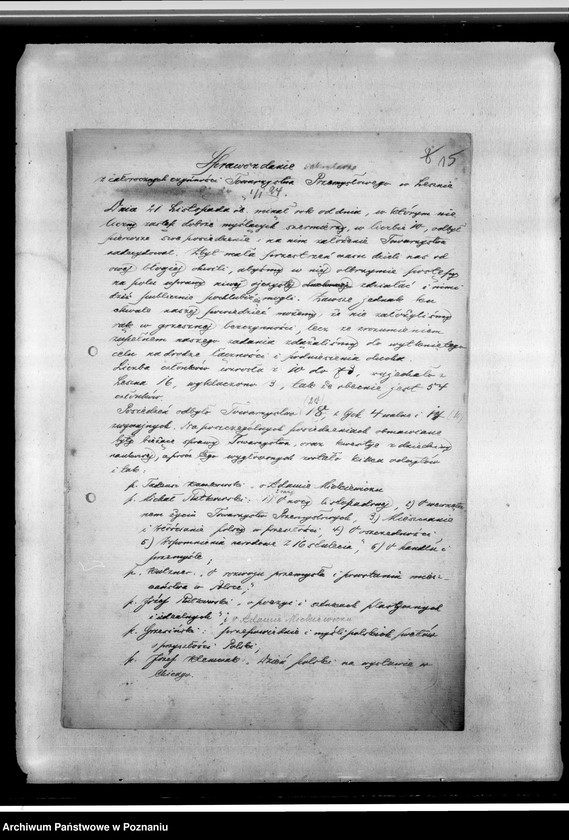 8/15
Sprawozdanie
z całorocznych czynności Towarzystwa Przemysłowego w Lesznie
1/1 94.
Dnia 21 Listopada minął rok od dnia, w którym nie
liczny zastęp dobrze myślących w liczbie 10, odbył
pierwsze swe posiedzenie, na nim założenie Towarzystwa
Zbyt mała przestrzeń nasza dzieli nas od
owej błogiej chwili, abyśmy w niej olbrzymie postępy
na polu niwy ojczystej zdziałać i nimi
dziś publicznie się mogli. Zawsze jednak ku
chwale naszej powiedzieć możemy, że nie założyliśmy
rąk w grzesznej bezczynności, lecz ze zrozumieniem
zupełnem naszego zadania zdążaliśmy do wytkniętego
celu na drodze łączności i podniesienia ducha.
Liczba członków wzrosła z 10 do 73, wyjechało z
Leszna 16, wykluczono 3, tak że obecnie jest 54
członków.
Posiedzeń odbyło Towarzystwo 18, z tych 4 walne i 14
zwyczajnych. Na poszczególnych posiedzeniach omawiane
były bieżące sprawy Towarzystwa, oraz kwestye z dziedziny
naukowej, a prócz tego wygłoszonych zostało kilka odczytów
i tak:
p. Tadeusz o Adamie Mickiewiczu
p. Michał Putkowski: 1) O nocy listopadowej, 2) O wewnętrz-
nem życiu Towarzystw Przemysłowych, 3) Mieszczanie
i Włościanie polscy w przeszłości, 4) O oszczędności,
5) Wspomnienia narodowe z 16 stulecia, 6) O handlu i
przemyśle,
p. Kutzner: O rozwoju przemysłu i powstaniu miesz-
czaństwa w Polsce,
p. Józef Putkowski: o poezyi i sztukach plastycznych
i idealnych; o Adamie Mickiewiczu
p. przepowiednie i myśli polskich poetów
o przyszłości Polski,
p. Józef Dzień polski na wystawie w
Chicago.
Archiwum Państwowe w Poznaniu